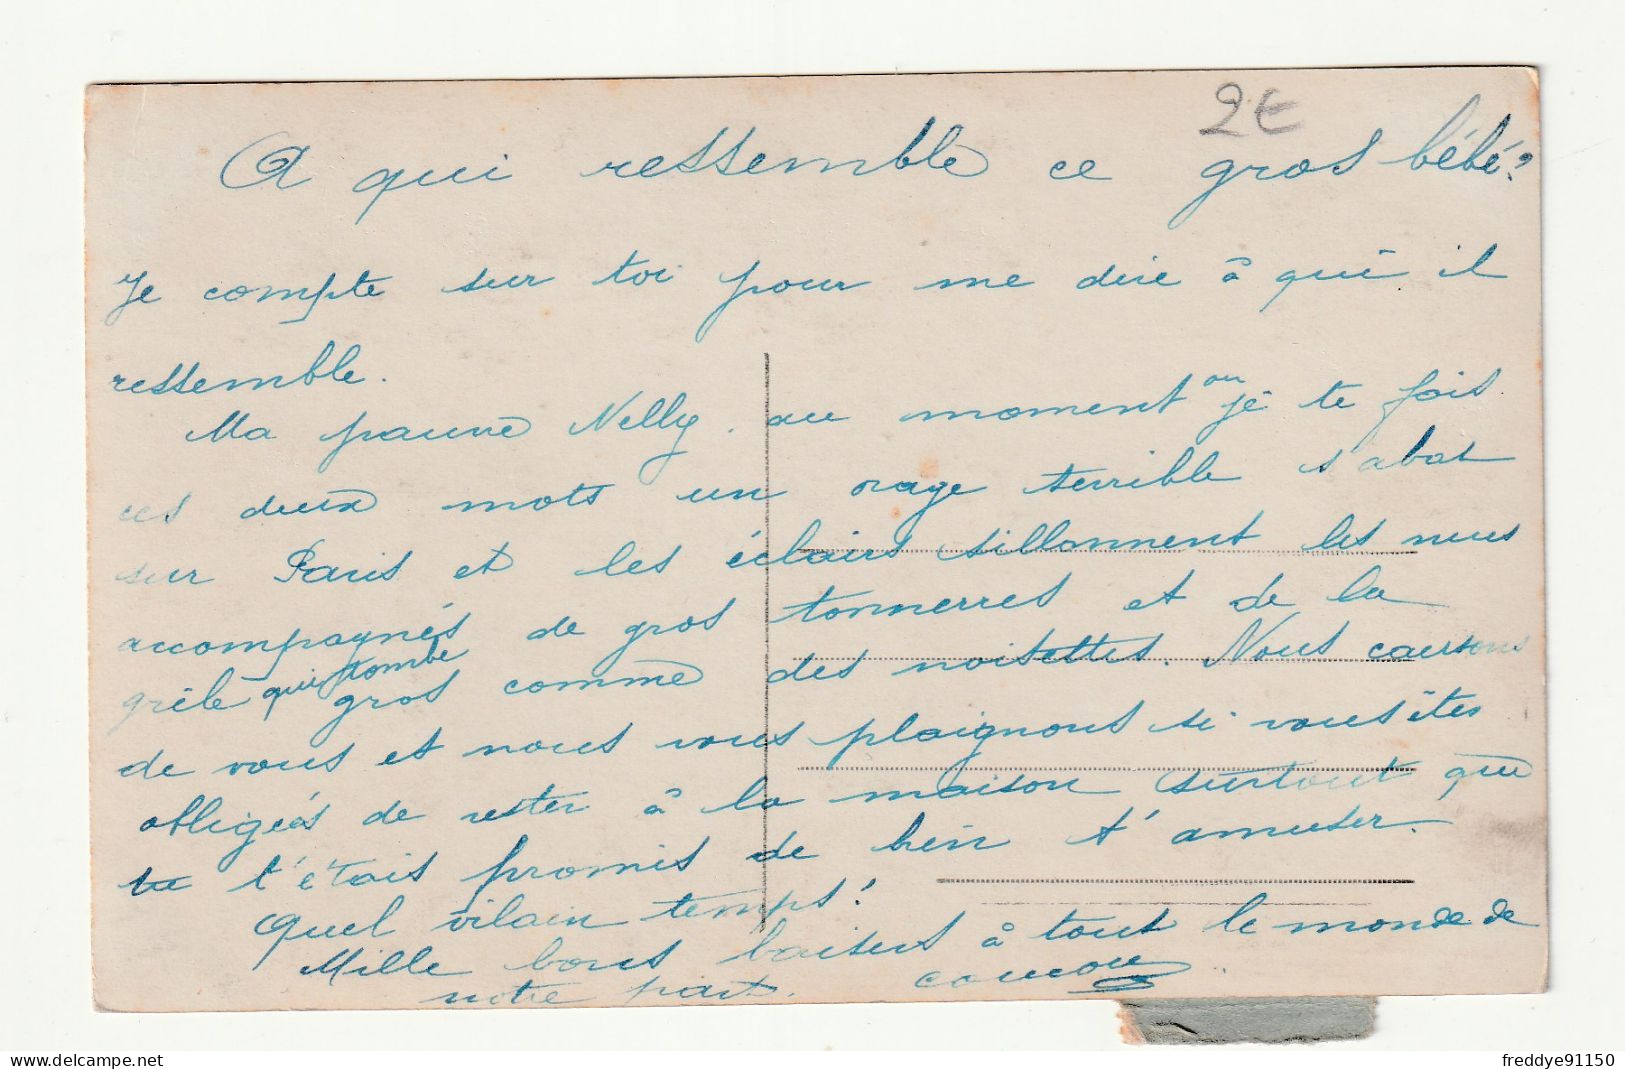 2€
A qui ressemble ce gros bébé?
Je compte sur toi pour me dire à qui il
ressemble.
Ma pauvre Nelly. au moment ou je te fais
ces deux mots un orage terrible s'abat
sur Paris et les éclairs sillonnent les nues
accompagnés de gros tonnerres et de la
grêle qui tombe gros comme des noisettes. Nous causons
de vous et nous vous plaignons si vous êtes
obligés de rester à la maison surtout que
tu t'étais promis de bien t'amuser.
Quel vilain temps!
Mille bons baisers à tout le monde de
notre part. coucou
delcampe.net
freddye91150